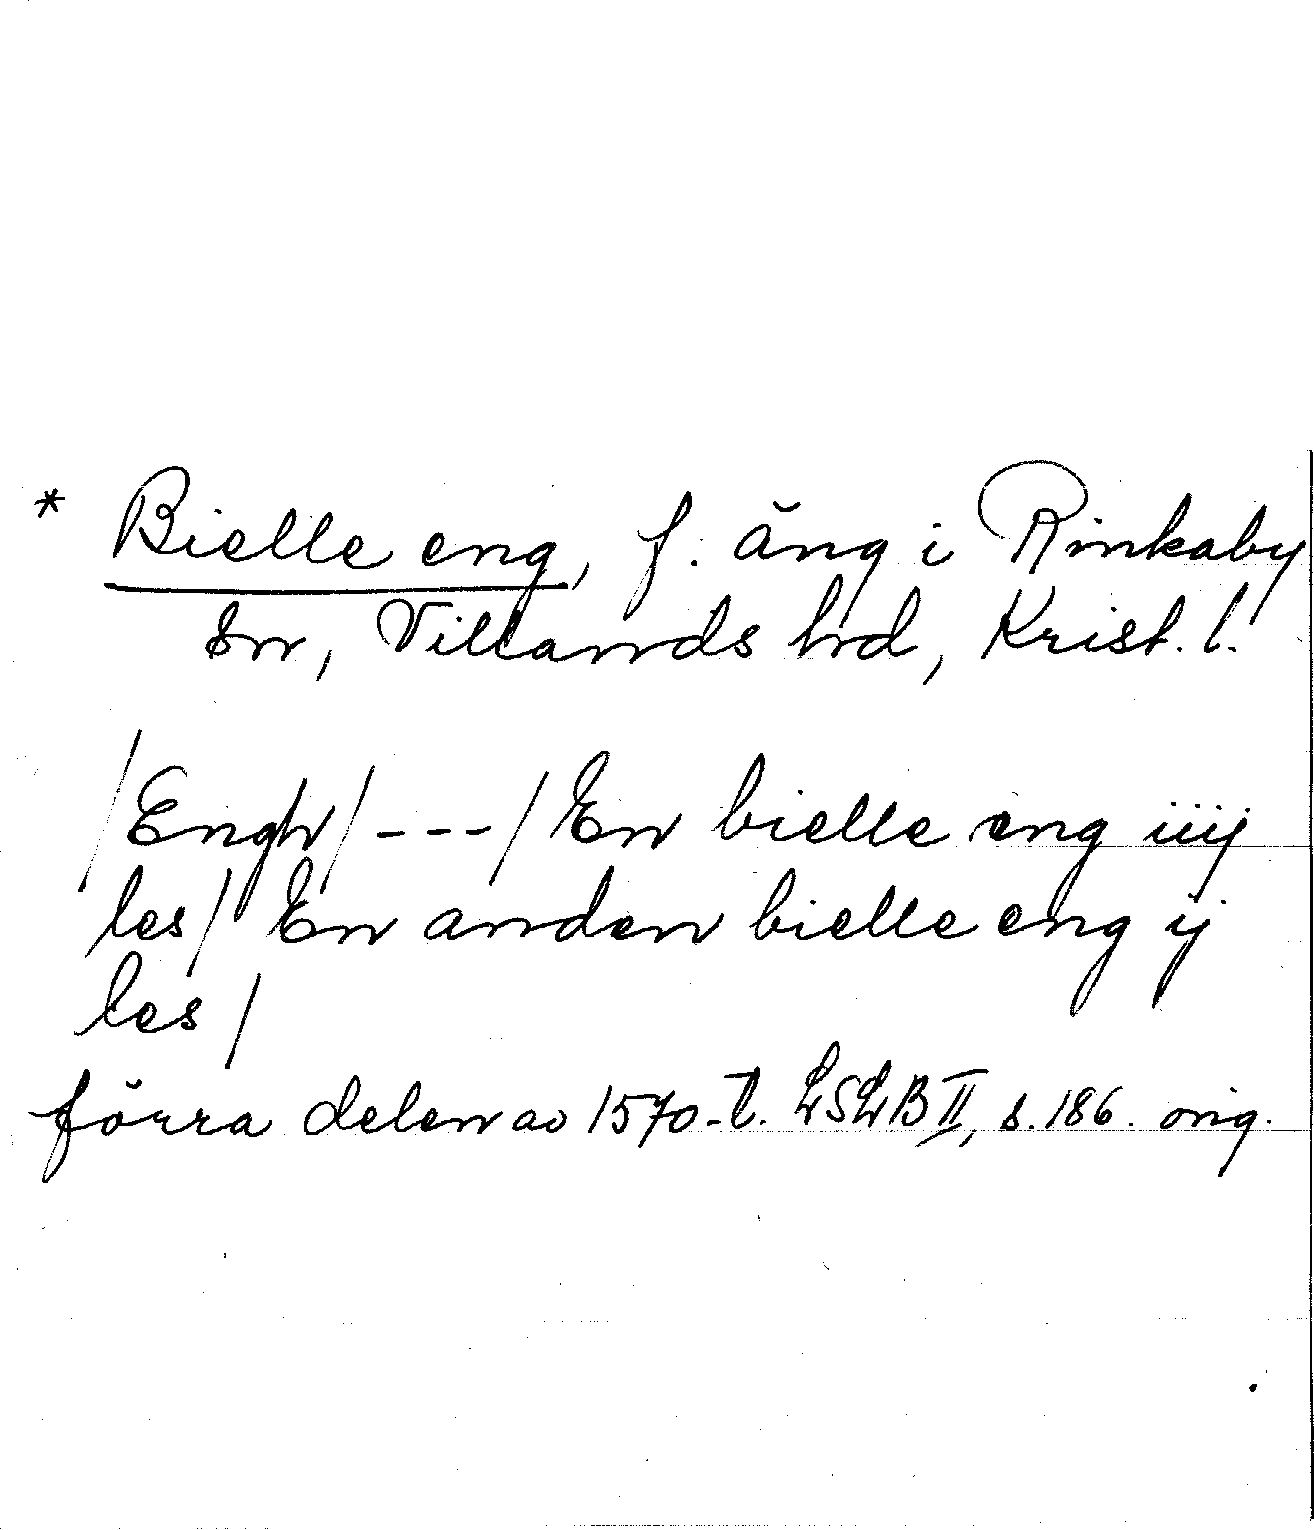 * Bielle eng, f. äng i Rinkaby
sn, Villands hrd, Krist. l.
/Engh/---/En bielle eng iiij
les/ En anden bielle eng ij
les/
förra delen av 1570-t. LSLB II, s. 186. orig.